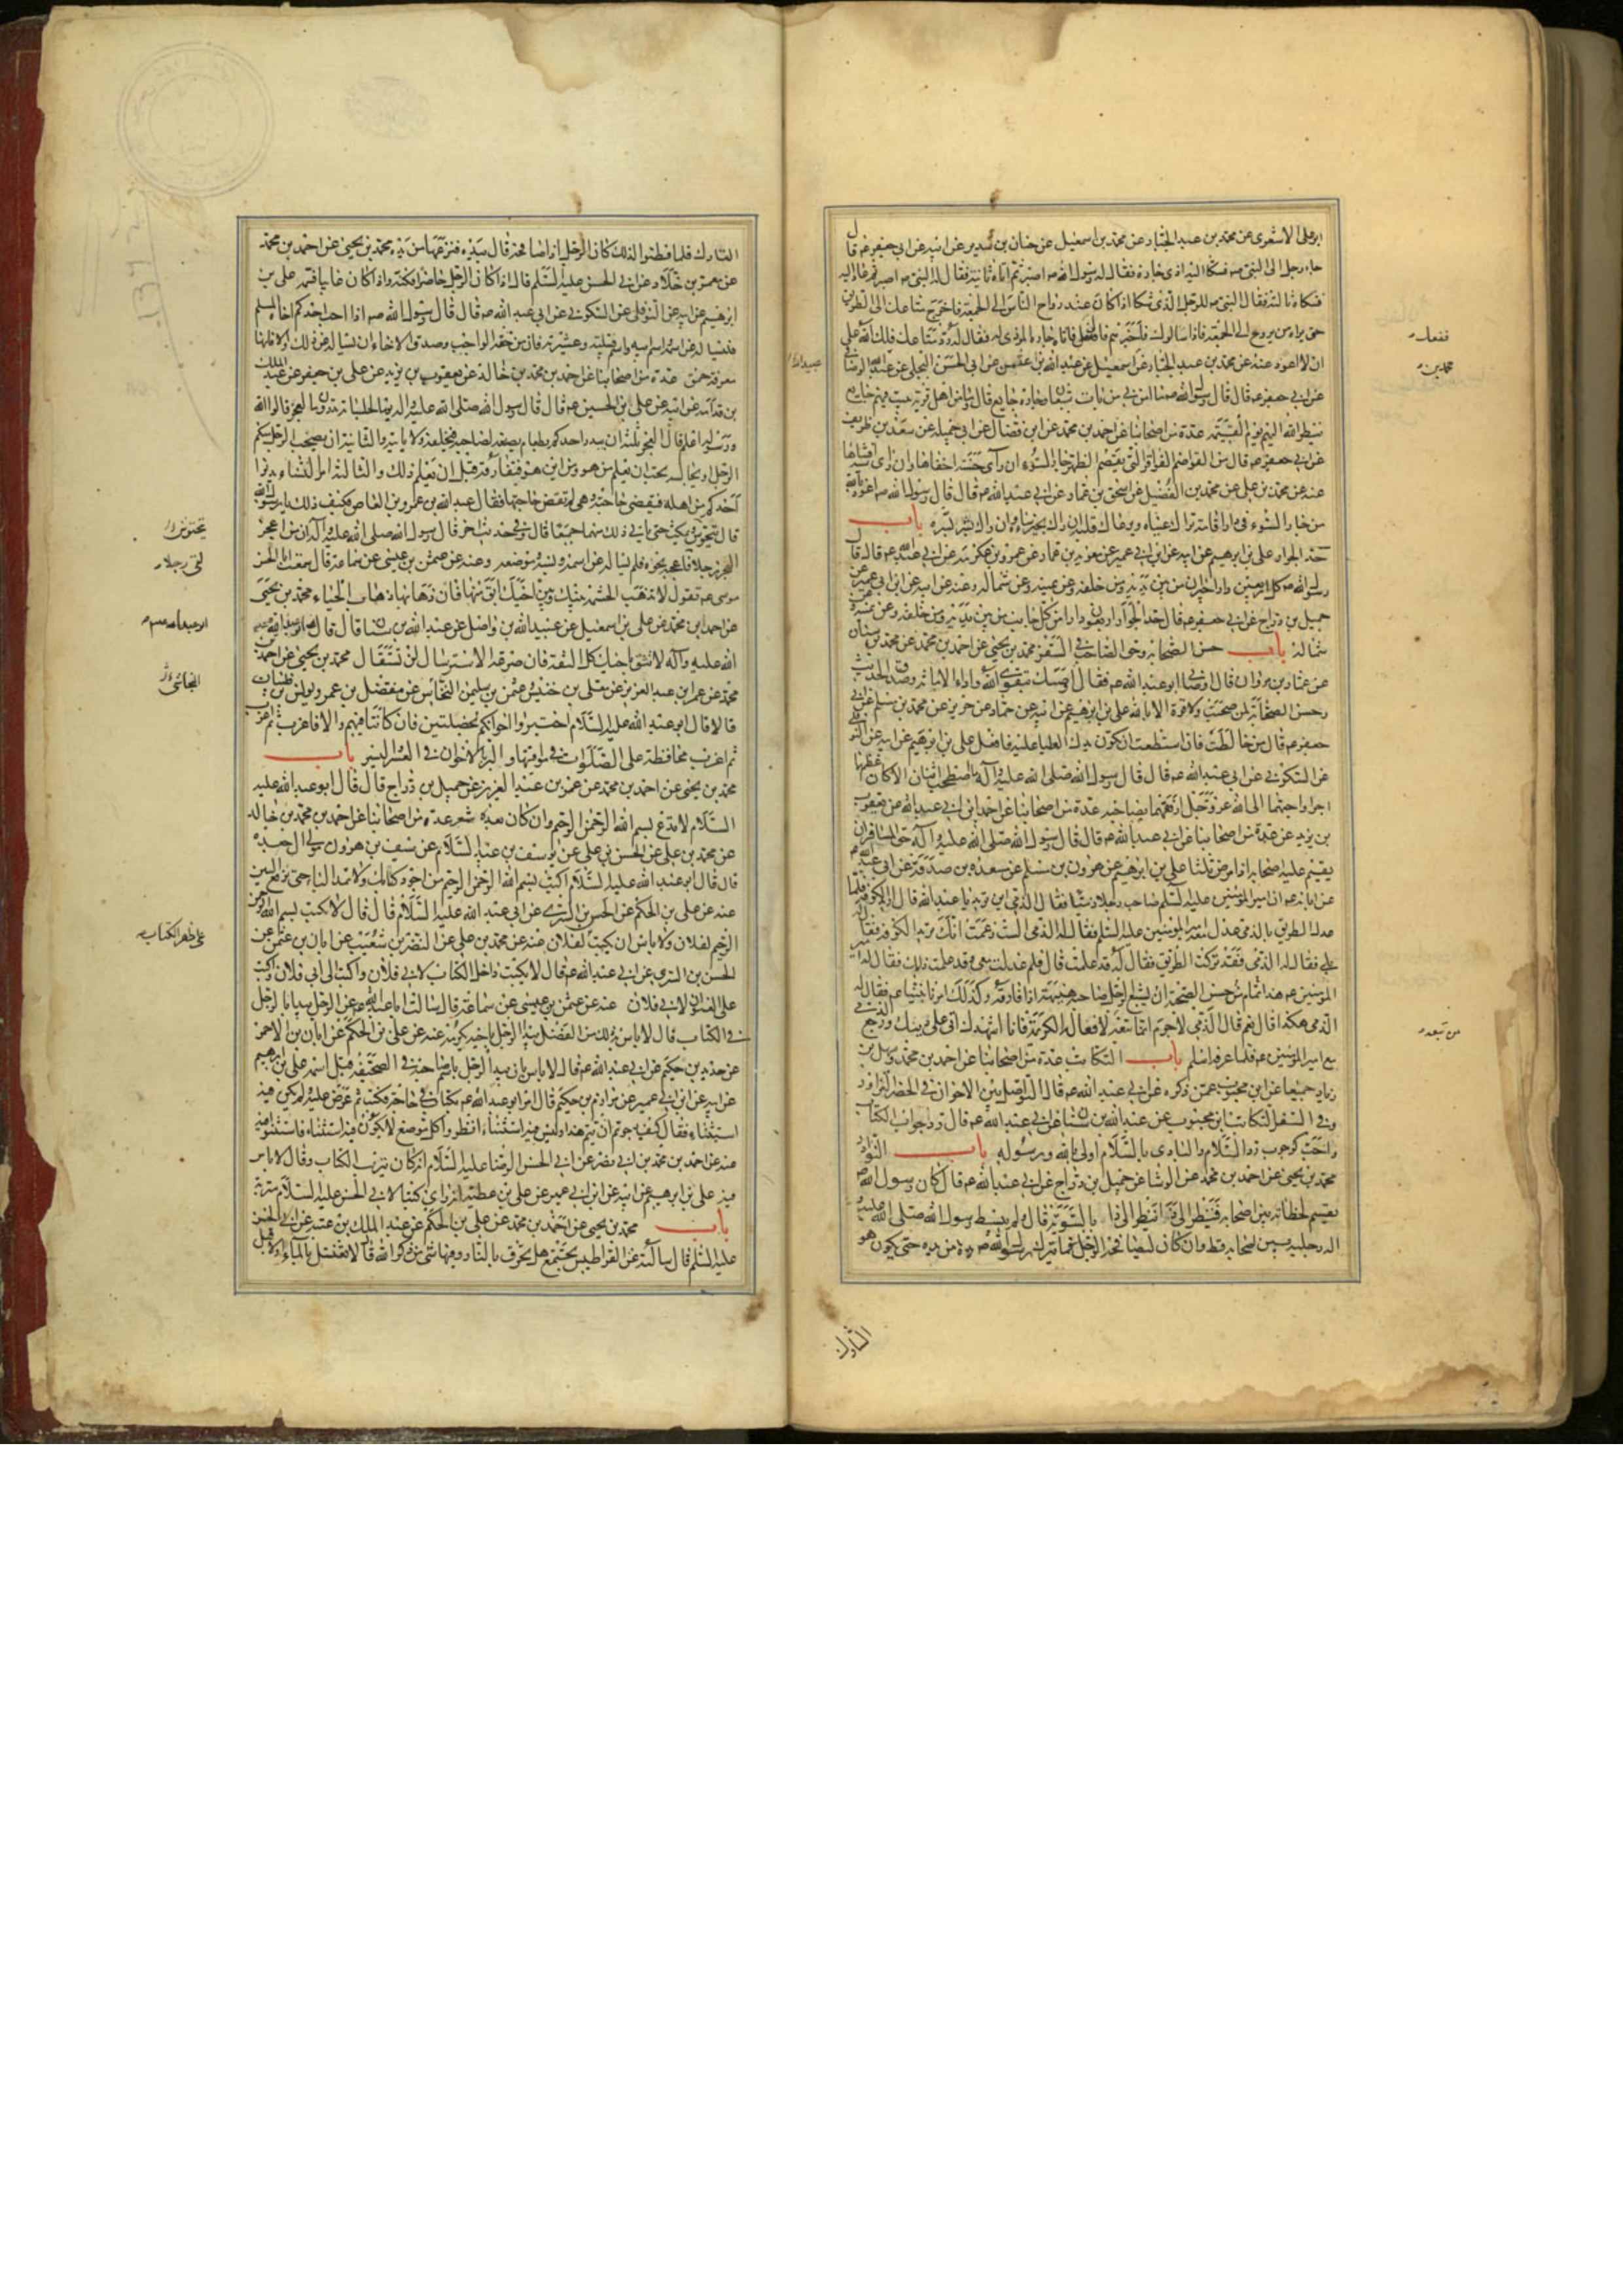 ابو علی الاشعری عن محمد بن عبد الجبار عن محمد بن اسمعیل عن حنان بن سدیر عن ابیه عن ابی جعفر عم قال
جاء رجل الی النبی صم فشکا الیه اذی جاره فقال له رسول الله صم اصبر ثم اتاه ثانیة فقال له النبی صم اصبر ثم عاد الیه
فشکاه ثالثة فقال النبی صم للرجل الذی شکا اذا کان عند رواح الناس الی الجمعة فاخرج متاعک الی الطریق
حتی یراه من یروح الی الجمعة فاذا سالوک فاخبرهم قال ففعل فاتاه جاره الموذی له فقال له رد متاعک فلک الله علی
ان لا اعود عنه عن محمد بن عبد الجبار عن اسمعیل عن عبد الله بن عثمن عن ابی الحسن البجلی عن عبید الله الوصافی
عن ابی جعفر عم قال قال رسول الله صم ما امن بی من بات شبعان وجاره جایع قال وما من اهل قریة یبیت فیهم جایع
ینظر الله الیهم یوم القیمة عدة من اصحابنا عن احمد بن محمد عن ابن فضال عن ابی جمیلة عن سعد بن طریف
عن ابی جعفر عم قال من القواصم الفواقر التی تقصم الظهر جار السوء ان رای حسنة اخفاها وان رای سیئة افشاها
عنه عن محمد بن علی عن محمد بن الفضیل عن اسحق بن عمار عن ابی عبد الله عم قال قال رسول الله صم اعوذ بالله
من جار السوء فی دار اقامة تراک عیناه ویرعاک قلبه ان راک بخیر ساءه وان راک بشر سره باب
حد الجوار علی بن ابرهیم عن ابیه عن ابن ابی عمیر عن معویة بن عمار عن عمرو بن عکرمة عن ابی عبد الله عم قال قال
رسول الله صم کل اربعین دارا جیران من بین یدیه ومن خلفه وعن یمینه وعن شماله وعنه عن ابیه عن ابن ابی عمیر عن
جمیل بن دراج عن ابی جعفر عم قال حد الجوار اربعون دارا من کل جانب من بین یدیه ومن خلفه وعن یمینه وعن
شماله باب حسن الصحابة وحق الصاحب فی السفر محمد بن یحیی عن احمد بن محمد عن محمد بن سنان
عن عمار بن مروان قال اوصانی ابو عبد الله عم فقال اوصیک بتقوی الله واداء الامانة وصدق الحدیث
وحسن الصحابة لمن صحبت ولا قوة الا بالله علی بن ابرهیم عن ابیه عن حماد عن حریز عن محمد بن مسلم عن ابی
جعفر عم قال من خالطت فان استطعت ان تکون یدک العلیا علیه فافعل علی بن ابرهیم عن ابیه عن النوفلی
عن السکونی عن ابی عبد الله عم قال قال رسول الله صلی الله علیه وآله ما اصطحب اثنان الا کان اعظمهما
اجرا واحبهما الی الله عز وجل ارفقهما بصاحبه عدة من اصحابنا عن احمد بن ابی عبد الله عن یعقوب
بن یزید عن عدة من اصحابنا عن ابی عبد الله عم قال قال رسول الله صلی الله علیه وآله حق المسافر ان
یقیم علیه اصحابه اذا مرض ثلثا علی بن ابرهیم عن هرون بن مسلم عن مسعدة بن صدقة عن ابی عبد الله عم
عن ابائه عم ان امیر المومنین علیه السلم صاحب رجلا ذمیا فقال له الذمی این ترید یا عبد الله قال ارید الکوفة فلما
عدل الطریق بالذمی عدل معه امیر المومنین علیه السلم فقال له الذمی الست زعمت انک ترید الکوفة فقال له
بلی فقال له الذمی فقد ترکت الطریق فقال له قد علمت قال فلم عدلت معی وقد علمت ذلک فقال له امیر
المومنین عم هذا من تمام حسن الصحبة ان یشیع الرجل صاحبه هنیهة اذا فارقه وکذلک امرنا نبینا عم فقال له
الذمی هکذا قال نعم قال الذمی لا جرم انما تبعه لافعاله الکریمة فانا اشهدک انی علی دینک ورجع الذمی
مع امیر المومنین عم فلما عرفه اسلم باب التکاتب عدة من اصحابنا عن احمد بن محمد وسهل بن
زیاد جمیعا عن ابن محبوب عمن ذکره عن ابی عبد الله عم قال التواصل بین الاخوان فی الحضر التزاور
وفی السفر التکاتب ابن محبوب عن عبد الله بن سنان عن ابی عبد الله عم قال رد جواب الکتاب
واجب کوجوب رد السلام والبادی بالسلام اولی بالله ورسوله باب النوادر
محمد بن یحیی عن احمد بن محمد عن الوشا عن جمیل بن دراج عن ابی عبد الله عم قال کان رسول الله صم
یقسم لحظاته بین اصحابه فینظر الی ذا وینظر الی ذا بالسویة قال ولم یبسط رسول الله صلی الله علیه و
اله رجلیه بین اصحابه قط وان کان لیصافحه الرجل فما یترک رسول الله صم یده من یده حتی یکون هو
التارک
ففعل
محمد بن
عبید الله
من تبعه
التارک فلما فطنوا لذلک کان الرجل اذا صافحه قال بیده فنزعها من یده محمد بن یحیی عن احمد بن محمد
عن معمر بن خلاد عن ابی الحسن علیه السلم قال اذا کان الرجل حاضرا فکنه واذا کان غایبا فسمه علی بن
ابرهیم عن ابیه عن النوفلی عن السکونی عن ابی عبد الله عم قال قال رسول الله صم اذا احب احدکم اخاه المسلم
فلیساله عن اسمه واسم ابیه واسم قبیلته وعشیرته فان من حقه الواجب وصدق الاخاء ان یساله عن ذلک والا فانها
معرفة حمق عدة من اصحابنا عن احمد بن محمد بن خالد عن یعقوب بن یزید عن علی بن جعفر عن عبد الملک
بن قدامة عن ابیه عن علی بن الحسین عم قال قال رسول الله صلی الله علیه وآله یوما لجلسائه تدرون ما العجز قالوا الله
ورسوله اعلم قال العجز ثلثة ان یبدر احدکم بطعام یصنعه لصاحبه فیخلفه ولا یاتیه والثانیة ان یصحب الرجل منکم
الرجل او یجالسه یحب ان یعلم من هو ومن این هو فیفارقه قبل ان یعلم ذلک والثالثة امر النساء یدنوا
احدکم من اهله فیقضی حاجته وهی لم تقض حاجتها فقال عبد الله بن عمرو بن العاص فکیف ذلک یا رسول الله
قال یتحوش ویمکث حتی یاتی ذلک منهما جمیعا قال وفی حدیث اخر قال رسول الله صلی الله علیه وآله ان من اعجز
العجز رجلا فاعجبه نحوه فلم یساله عن اسمه ونسبه وموضعه وعنه عن عثمن بن عیسی عن سماعة قال سمعت ابا الحسن
موسی عم یقول لا تذهب الحشمة بینک وبین اخیک ابق منها فان ذهابها ذهاب الحیاء محمد بن یحیی
عن احمد بن محمد عن علی بن اسمعیل عن عبید الله بن واصل عن عبد الله بن سنان قال قال
الله علیه وآله لا تثق باخیک کل الثقة فان صرعة الاسترسال لن تستقال محمد بن یحیی عن احمد بن
محمد عن عمر بن عبد العزیز عن معلی بن خنیس عثمن بن سلیمن النخاس عن مفضل بن عمر ویونس بن ظبیان
قالا قال ابو عبد الله علیه السلام اختبروا اخوانکم بخصلتین فان کانتا فیهم والا فاعزب ثم اعزب
ثم اعزب محافظة علی الصلوات فی مواقیتها والبر بالاخوان فی العسر والیسر باب
محمد بن یحیی عن احمد بن محمد عن عمر بن عبد العزیز عن جمیل بن دراج قال قال ابو عبد الله علیه
السلام لا تدع بسم الله الرحمن الرحیم وان کان بعده شعر عدة من اصحابنا عن احمد بن محمد بن خالد
عن محمد بن علی عن الحسن بن علی عن یوسف بن عبد السلام عن سیف بن هرون مولی ال جعدة
قال قال ابو عبد الله علیه السلام اکتب بسم الله الرحمن الرحیم من اجود کتابک ولا تمد الباء حتی ترفع السین
عنه عن علی بن الحکم عن الحسن بن السری عن ابی عبد الله علیه السلام قال قال لا تکتب بسم الله الرحمن
الرحیم لفلان ولا باس ان تکتب لفلان عنه عن محمد بن علی عن النضر بن شعیب عن ابان بن عثمن عن
الحسن بن السری عن ابی عبد الله عم قال لا تکتب داخل الکتاب لابی فلان واکتب الی ابی فلان واکتب
علی العنوان لابی فلان عنه عن عثمن بن عیسی عن سماعة قال سالت ابا عبد الله عم عن الرجل یبدا بالرجل
فی الکتاب قال لا باس به ذلک من الفضل یبدا الرجل باخیه یکرمه عنه عن علی بن الحکم عن ابان بن الاحمر
عن حدید بن حکیم عن ابی عبد الله عم قال لا باس بان یبدا الرجل باسم صاحبه فی الصحیفة قبل اسمه علی بن ابرهیم
عن ابیه عن ابن ابی عمیر عن مرازم بن حکیم قال امر ابو عبد الله عم بکتاب فی حاجة فکتب ثم عرض علیه ولم یکن فیه
استثناء فقال کیف رجوتم ان یتم هذا ولیس فیه استثناء انظروا کل موضع لا یکون فیه استثناء فاستثنوا فیه
عنه عن احمد بن محمد بن ابی نصر عن ابی الحسن الرضا علیه السلام انه کان یترب الکتاب وقال لا باس
به علی بن ابرهیم عن ابیه عن ابن ابی عمیر عن علی بن عطیة انه رای کتبا لابی الحسن علیه السلام متربة
باب محمد بن یحیی عن احمد بن محمد عن علی بن الحکم عن عبد الملک بن عتبة عن ابی الحسن
علیه السلم قال سالته عن القراطیس تجتمع هل تحرق بالنار وفیها شی من ذکر الله قال لا تغسل بالماء اولا قبل
لقی رجلا
النجاشی
علی ظهر الکتاب